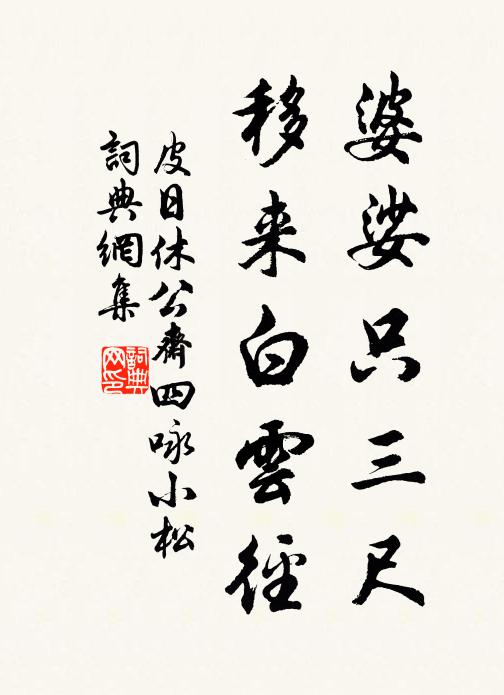 婆娑只三尺
移来白雲徑
皮日休公齋四咏小松
詞典網集
詞典网印